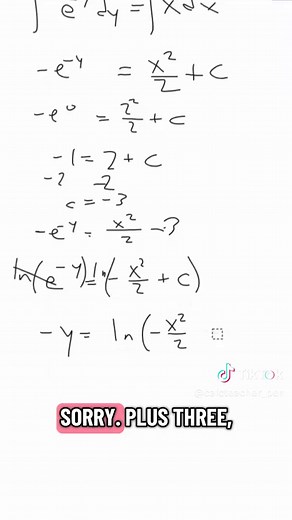 ∫ e⁻ʸ dy = ∫ x dx
-e⁻ʸ = x²/2 + c
-e⁰ = 2²/2 + c
-1 = 2 + c
-2 -2
c = -3
-e⁻ʸ = x²/2 - 3
ln(e⁻ʸ) = ln(-x²/2 + c)
-y = ln(-x²/2
TikTok
SORRY. PLUS THREE,